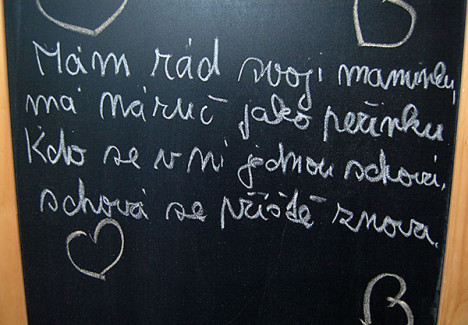 Mám rád svoji maminku,
má náruč jako peřinku.
Kdo se v ní jednou schová,
schová se příště znova.